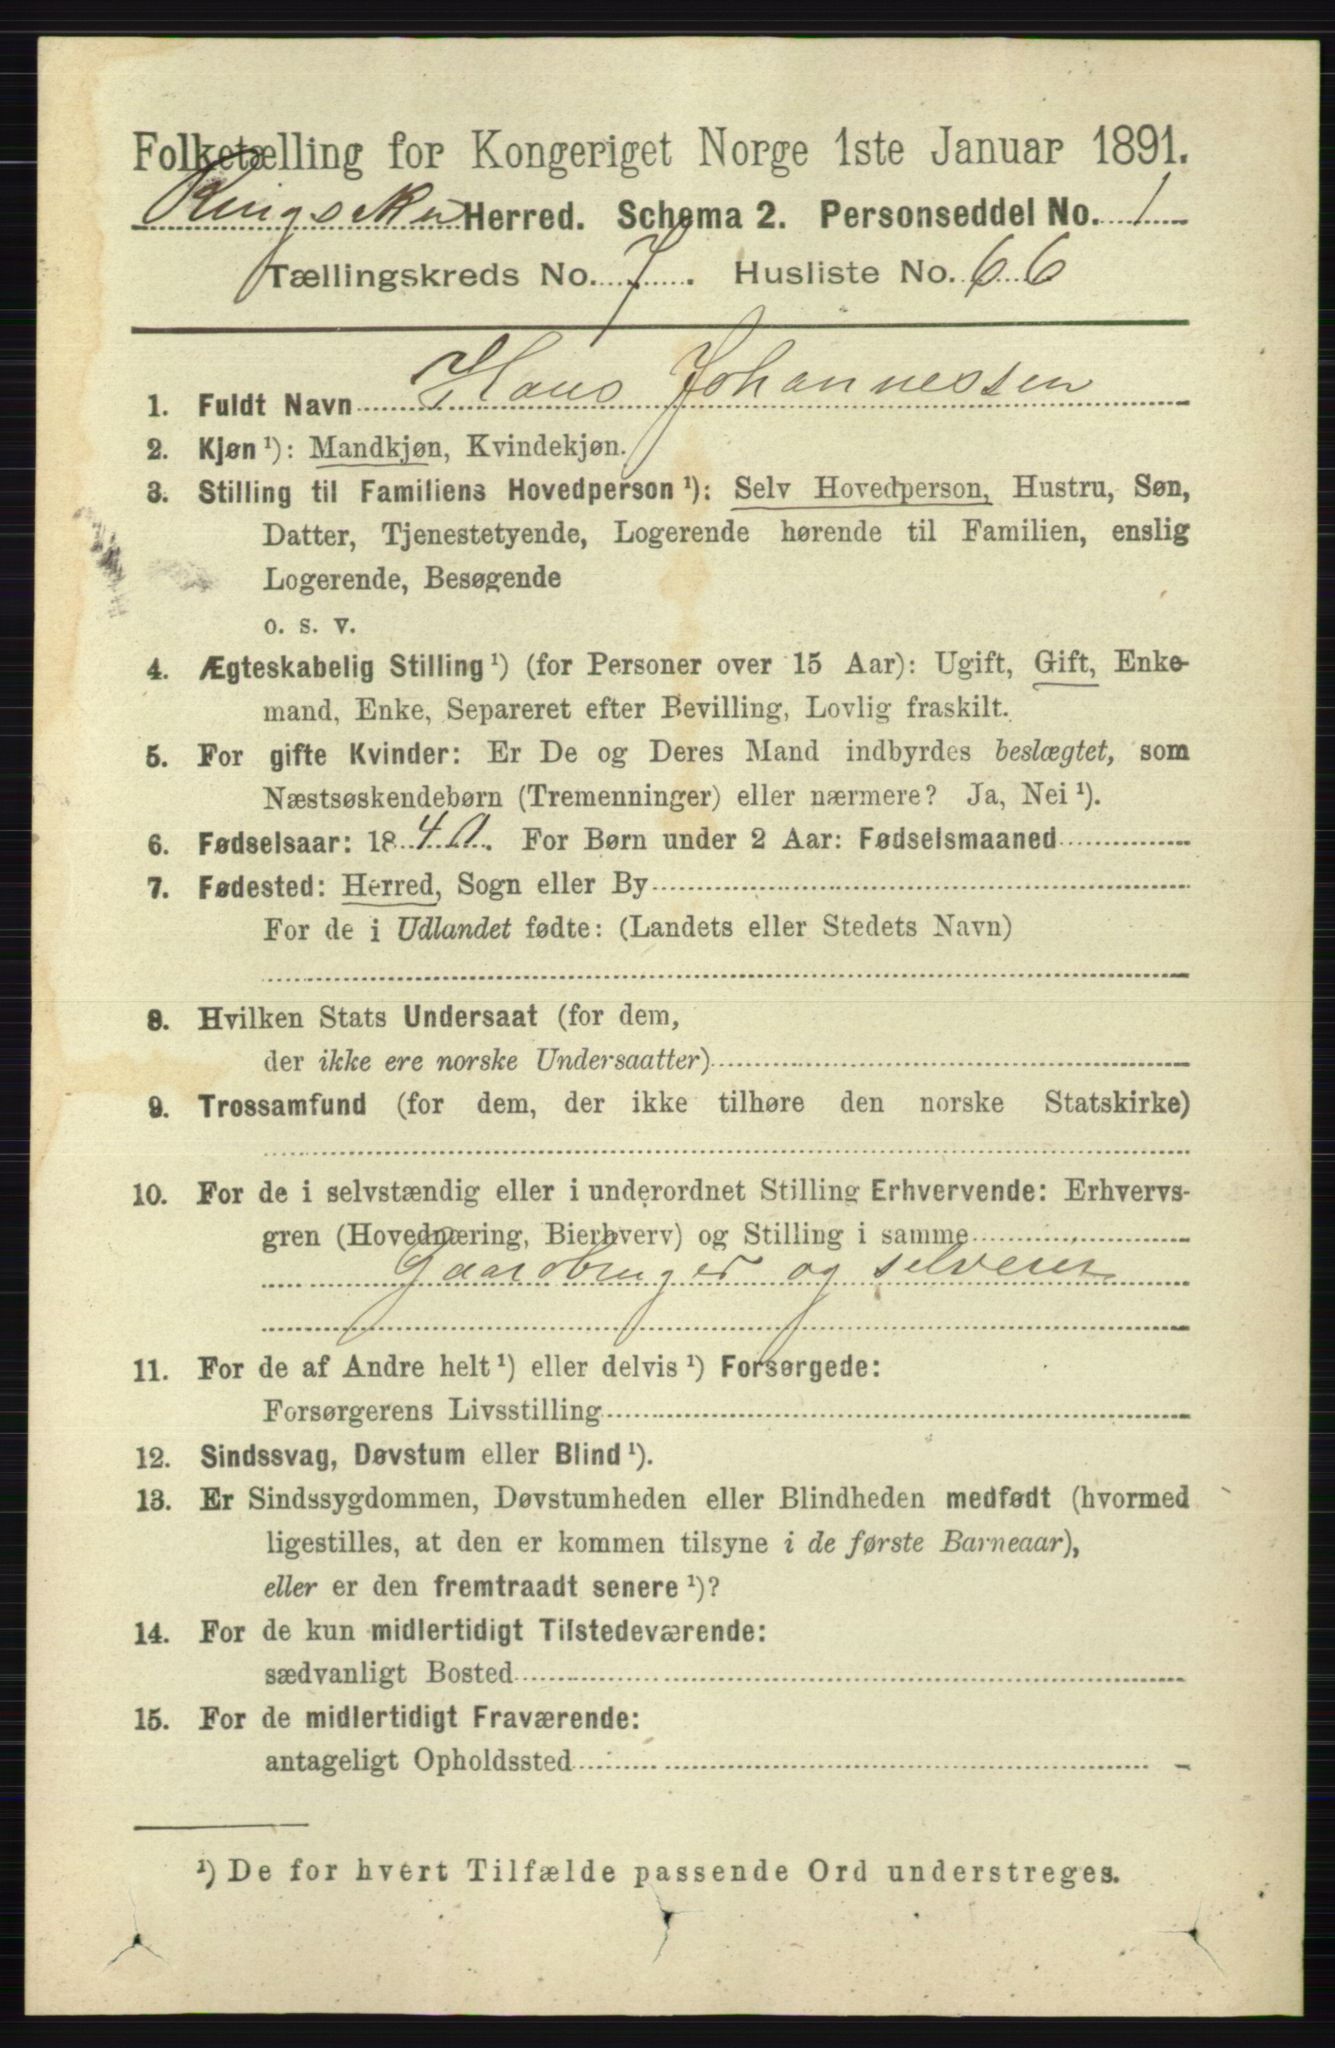 Folketælling for Kongeriget Norge 1ste Januar 1891.
Ringsaker Herred. Schema 2. Personseddel No. 1
Tællingskreds No. 7. Husliste No. 66
1. Fuldt Navn Hans Johannessen
2. Kjøn ¹): Mandkjøn, Kvindekjøn.
3. Stilling til Familiens Hovedperson ¹): Selv Hovedperson, Hustru, Søn,
Datter, Tjenestetyende, Logerende hørende til Familien, enslig
Logerende, Besøgende
o. s. v.
4. Ægteskabelig Stilling ¹) (for Personer over 15 Aar): Ugift, Gift, Enke-
mand, Enke, Separeret efter Bevilling, Lovlig fraskilt.
5. For gifte Kvinder: Er De og Deres Mand indbyrdes beslægtet, som
Næstsøskendebørn (Tremenninger) eller nærmere? Ja, Nei ¹).
6. Fødselsaar: 184. For Børn under 2 Aar: Fødselsmaaned
7. Fødested: Herred, Sogn eller By
For de i Udlandet fødte: (Landets eller Stedets Navn)
8. Hvilken Stats Undersaat (for dem,
der ikke ere norske Undersaatter)
9. Trossamfund (for dem, der ikke tilhøre den norske Statskirke)
10. For de i selvstændig eller i underordnet Stilling Erhvervende: Erhvervs-
gren (Hovednæring, Bierhverv) og Stilling i samme
Gaardbruger og selveier
11. For de af Andre helt ¹) eller delvis ¹) Forsørgede:
Forsørgerens Livsstilling
12. Sindssvag, Døvstum eller Blind ¹).
13. Er Sindssygdommen, Døvstumheden eller Blindheden medfødt (hvormed
ligestilles, at den er kommen tilsyne i de første Barneaar),
eller er den fremtraadt senere ¹)?
14. For de kun midlertidigt Tilstedeværende:
sædvanligt Bosted
15. For de midlertidigt Fraværende:
antageligt Opholdssted
¹) De for hvert Tilfælde passende Ord understreges.